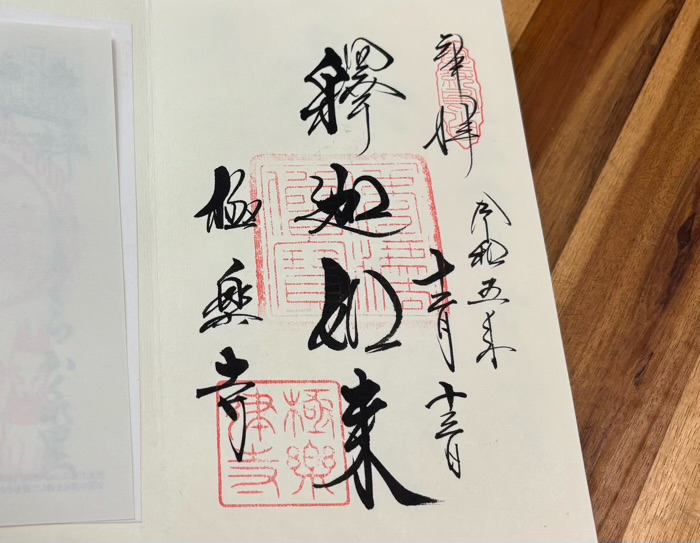 奉拝
令和五年
十二月十三日
釋迦如来
極楽寺
極樂律寺